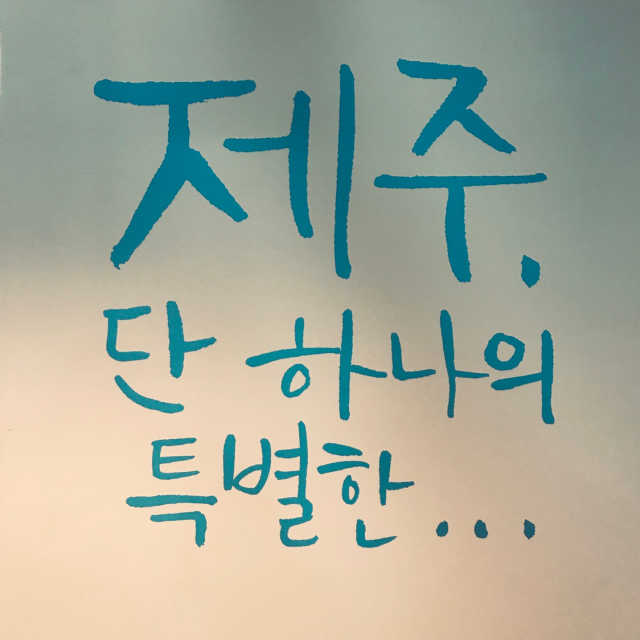 제주.
단 하나의
특별한...